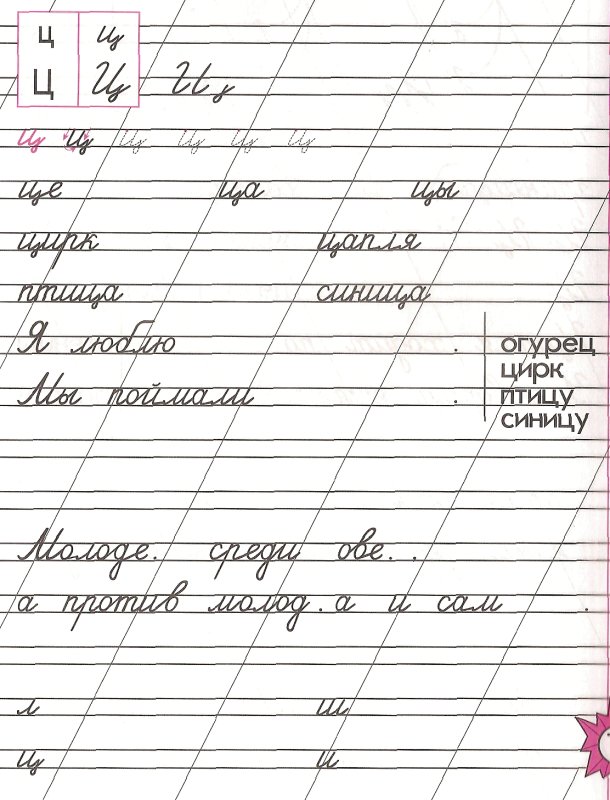 ц ц
Ц Ц Ц
ц ц ц ц ц ц
це ца цы
цирк цапля
птица синица
Я люблю .
Мы поймали .
огурец
цирк
птицу
синицу
Молоде. среди ове. .
а против молод.а и сам .
л ш
ц и